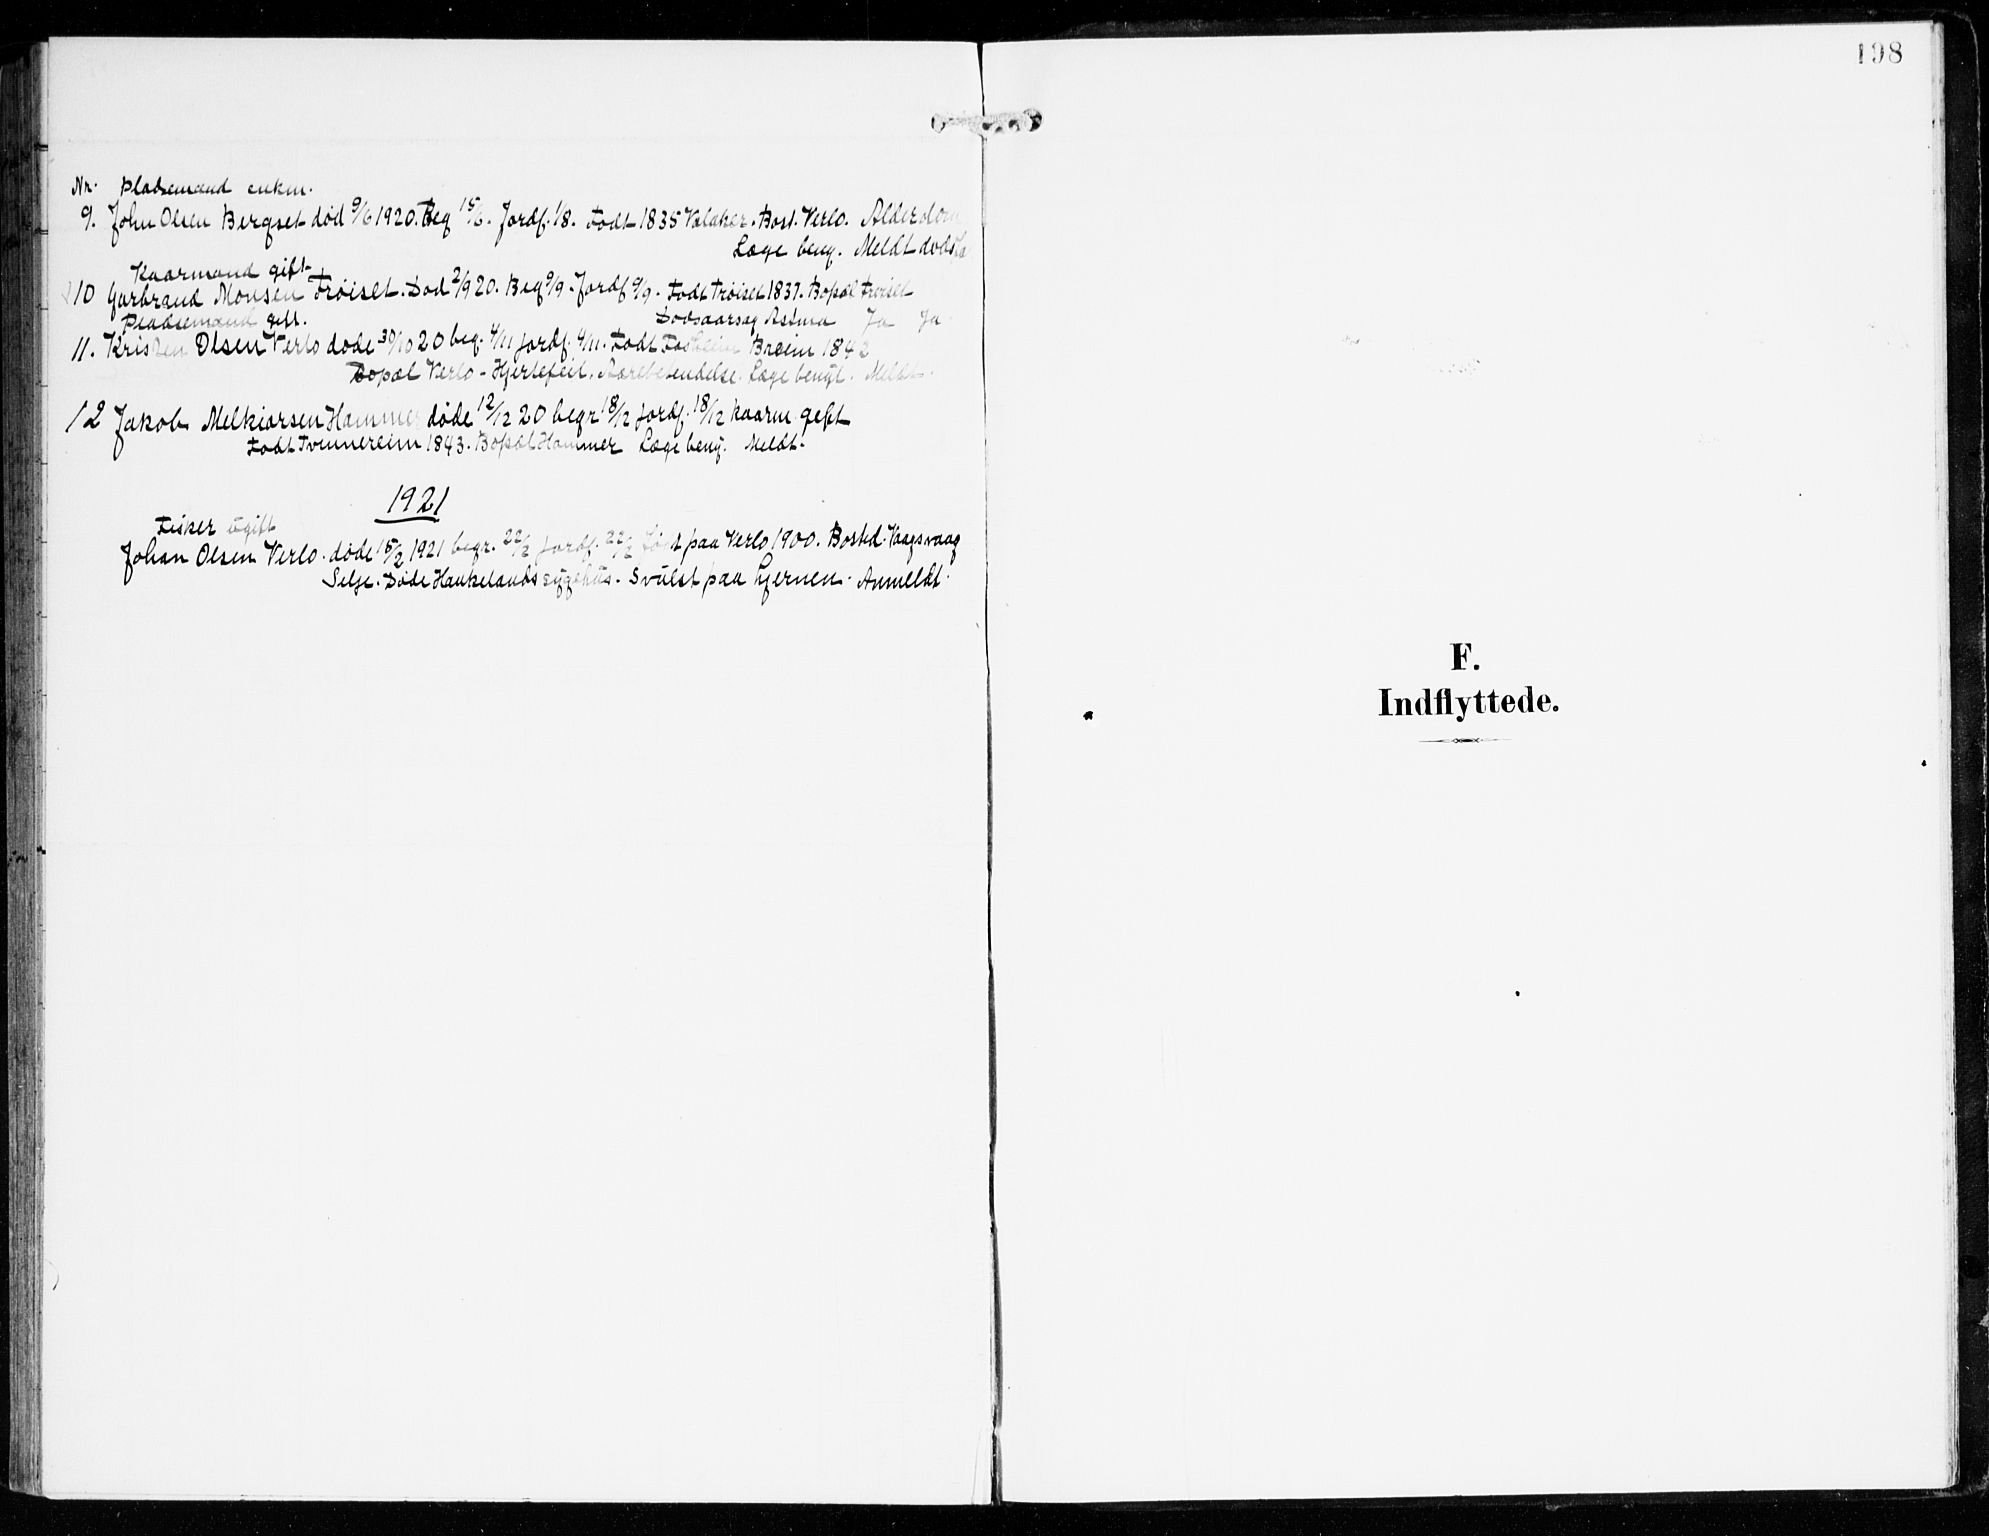 Nr. Pladsemand enkm.
9. John Olsen Bergset død 9/6 1920. Beg 15/6. Jordf. 1/8. Født 1835 Valaker. Bost. Verlo.
Læge beny. Meldt
Kaarmand gift
10 Garbrand Monsen Trøiset. Død 2/9 20. Beg 9/9. Jordf 9/9. Født Trøiset 1837. Bopæl Trøiset
Pladsemand gift. Dødsaarsag Astma Ja Ja
11. Kristen Olsen Verlo døde 30/10 20 beg. 4/11 jordf. 4/11. Født Breim 1842
Bopæl Verlo - Hjertefeil. Læge benyt. Meldt.
12 Jakob Melkiorsen Hammer døde 12/12 20 begr 18/12 jordf. 18/12 kaarm gift
Født Tvinnereim 1843. Bopæl Hammer Læge beny. Meldt.
1921
Fisker ugift
Johan Olsen Verlo. døde 15/2 1921 begr. 22/2 jordf. 22/2 Født paa Verlo 1900. Bosted. Vaagsvaag
Selje. Døde Haukelands sygehus. Svulst paa hjernen. Anmeldt.
198
F.
Indflyttede.